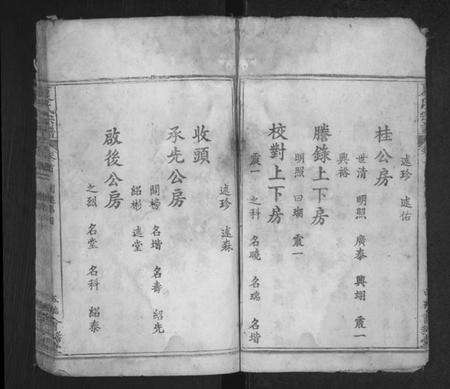 遠珍 遠佑
桂公房
世清 明照 廣泰 興翊 震一
興裕
謄錄上下房
明照 曰瑚 震一
校對上下房
震一 之科 名曉 名瑞 名堦
遠珍 遠森
收頭
承先公房
開榜 名堦 名壽 紹先
紹彬 遠堂
啟後公房
之烈 名堂 名科 紹泰